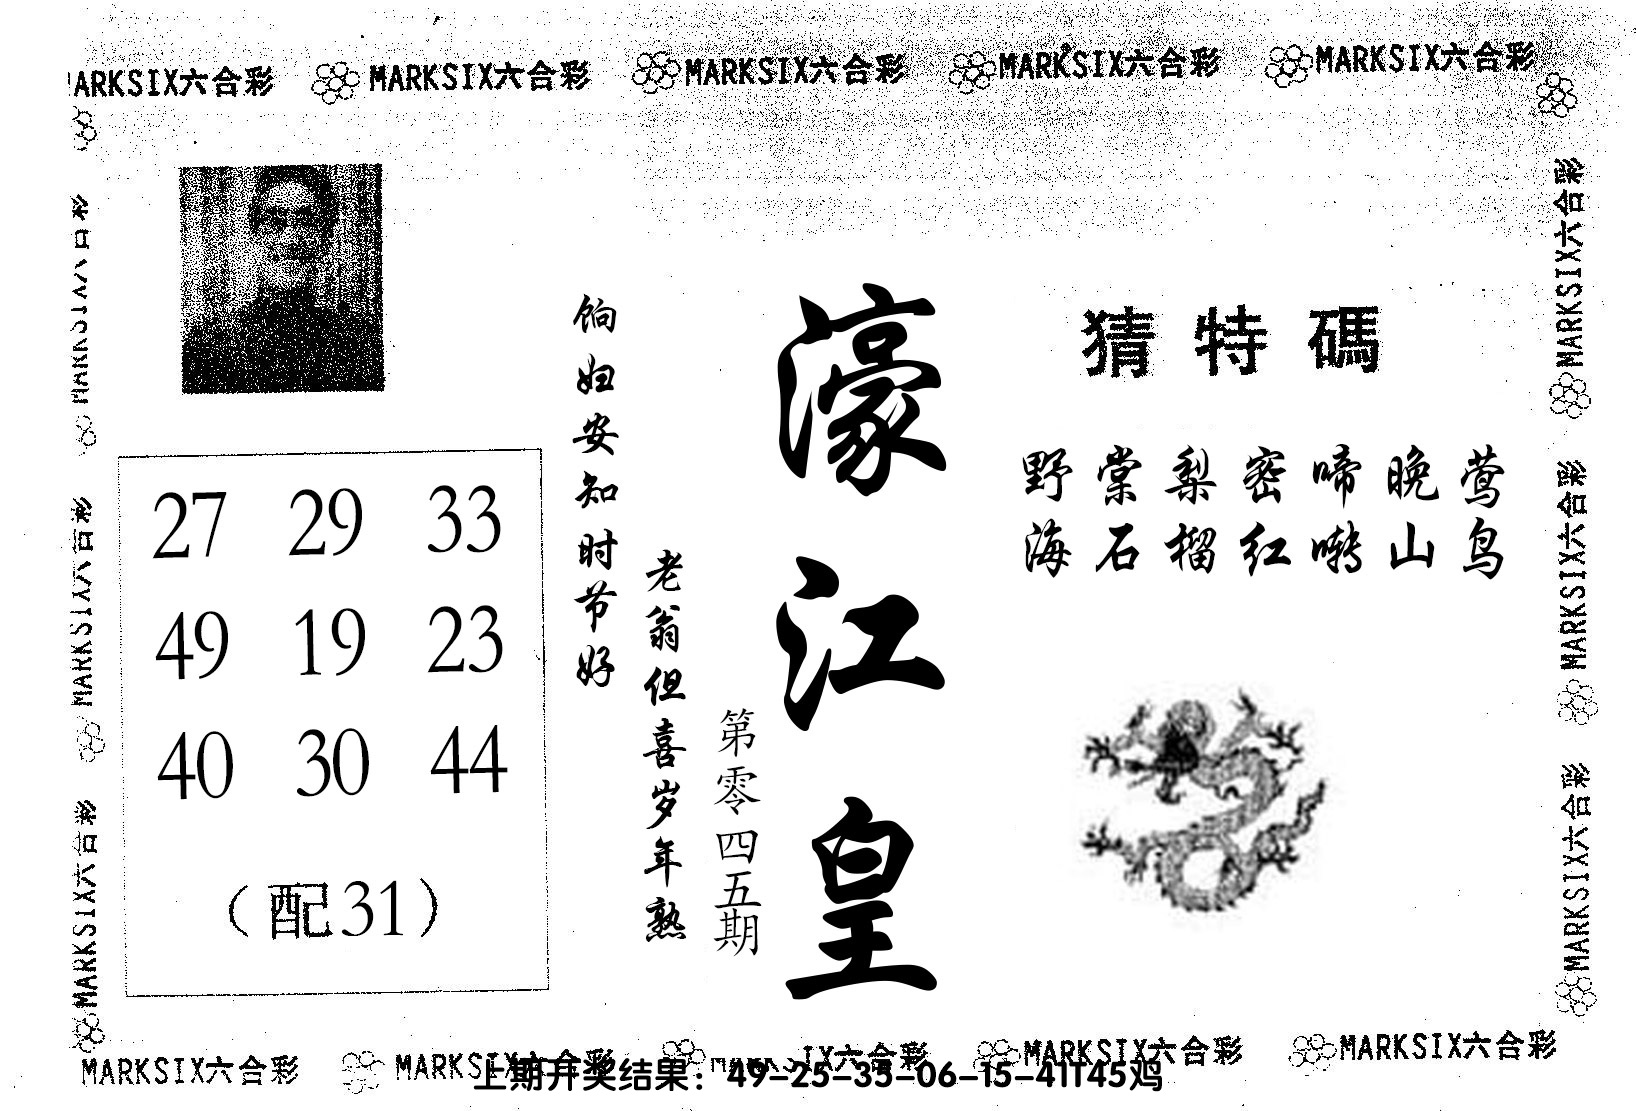 MARKSIX六合彩 MARKSIX六合彩 MARKSIX六合彩 MARKSIX六合彩 MARKSIX六合彩
MARKSIX六合彩
MARKSIX六合彩
MARKSIX六合彩
MARKSIX六合彩
MARKSIX六合彩
MARKSIX六合彩
猜特碼
野棠梨密啼晚莺
海石榴红啭山鸟
濠江皇
第零四五期
老翁但喜岁年熟
饷妇安知时节好
27 29 33
49 19 23
40 30 44
（配31）
MARKSIX六合彩 MARKSIX六合彩 MARKSIX六合彩 MARKSIX六合彩 MARKSIX六合彩
上期开奖结果：49-25-35-06-15-41T45鸡